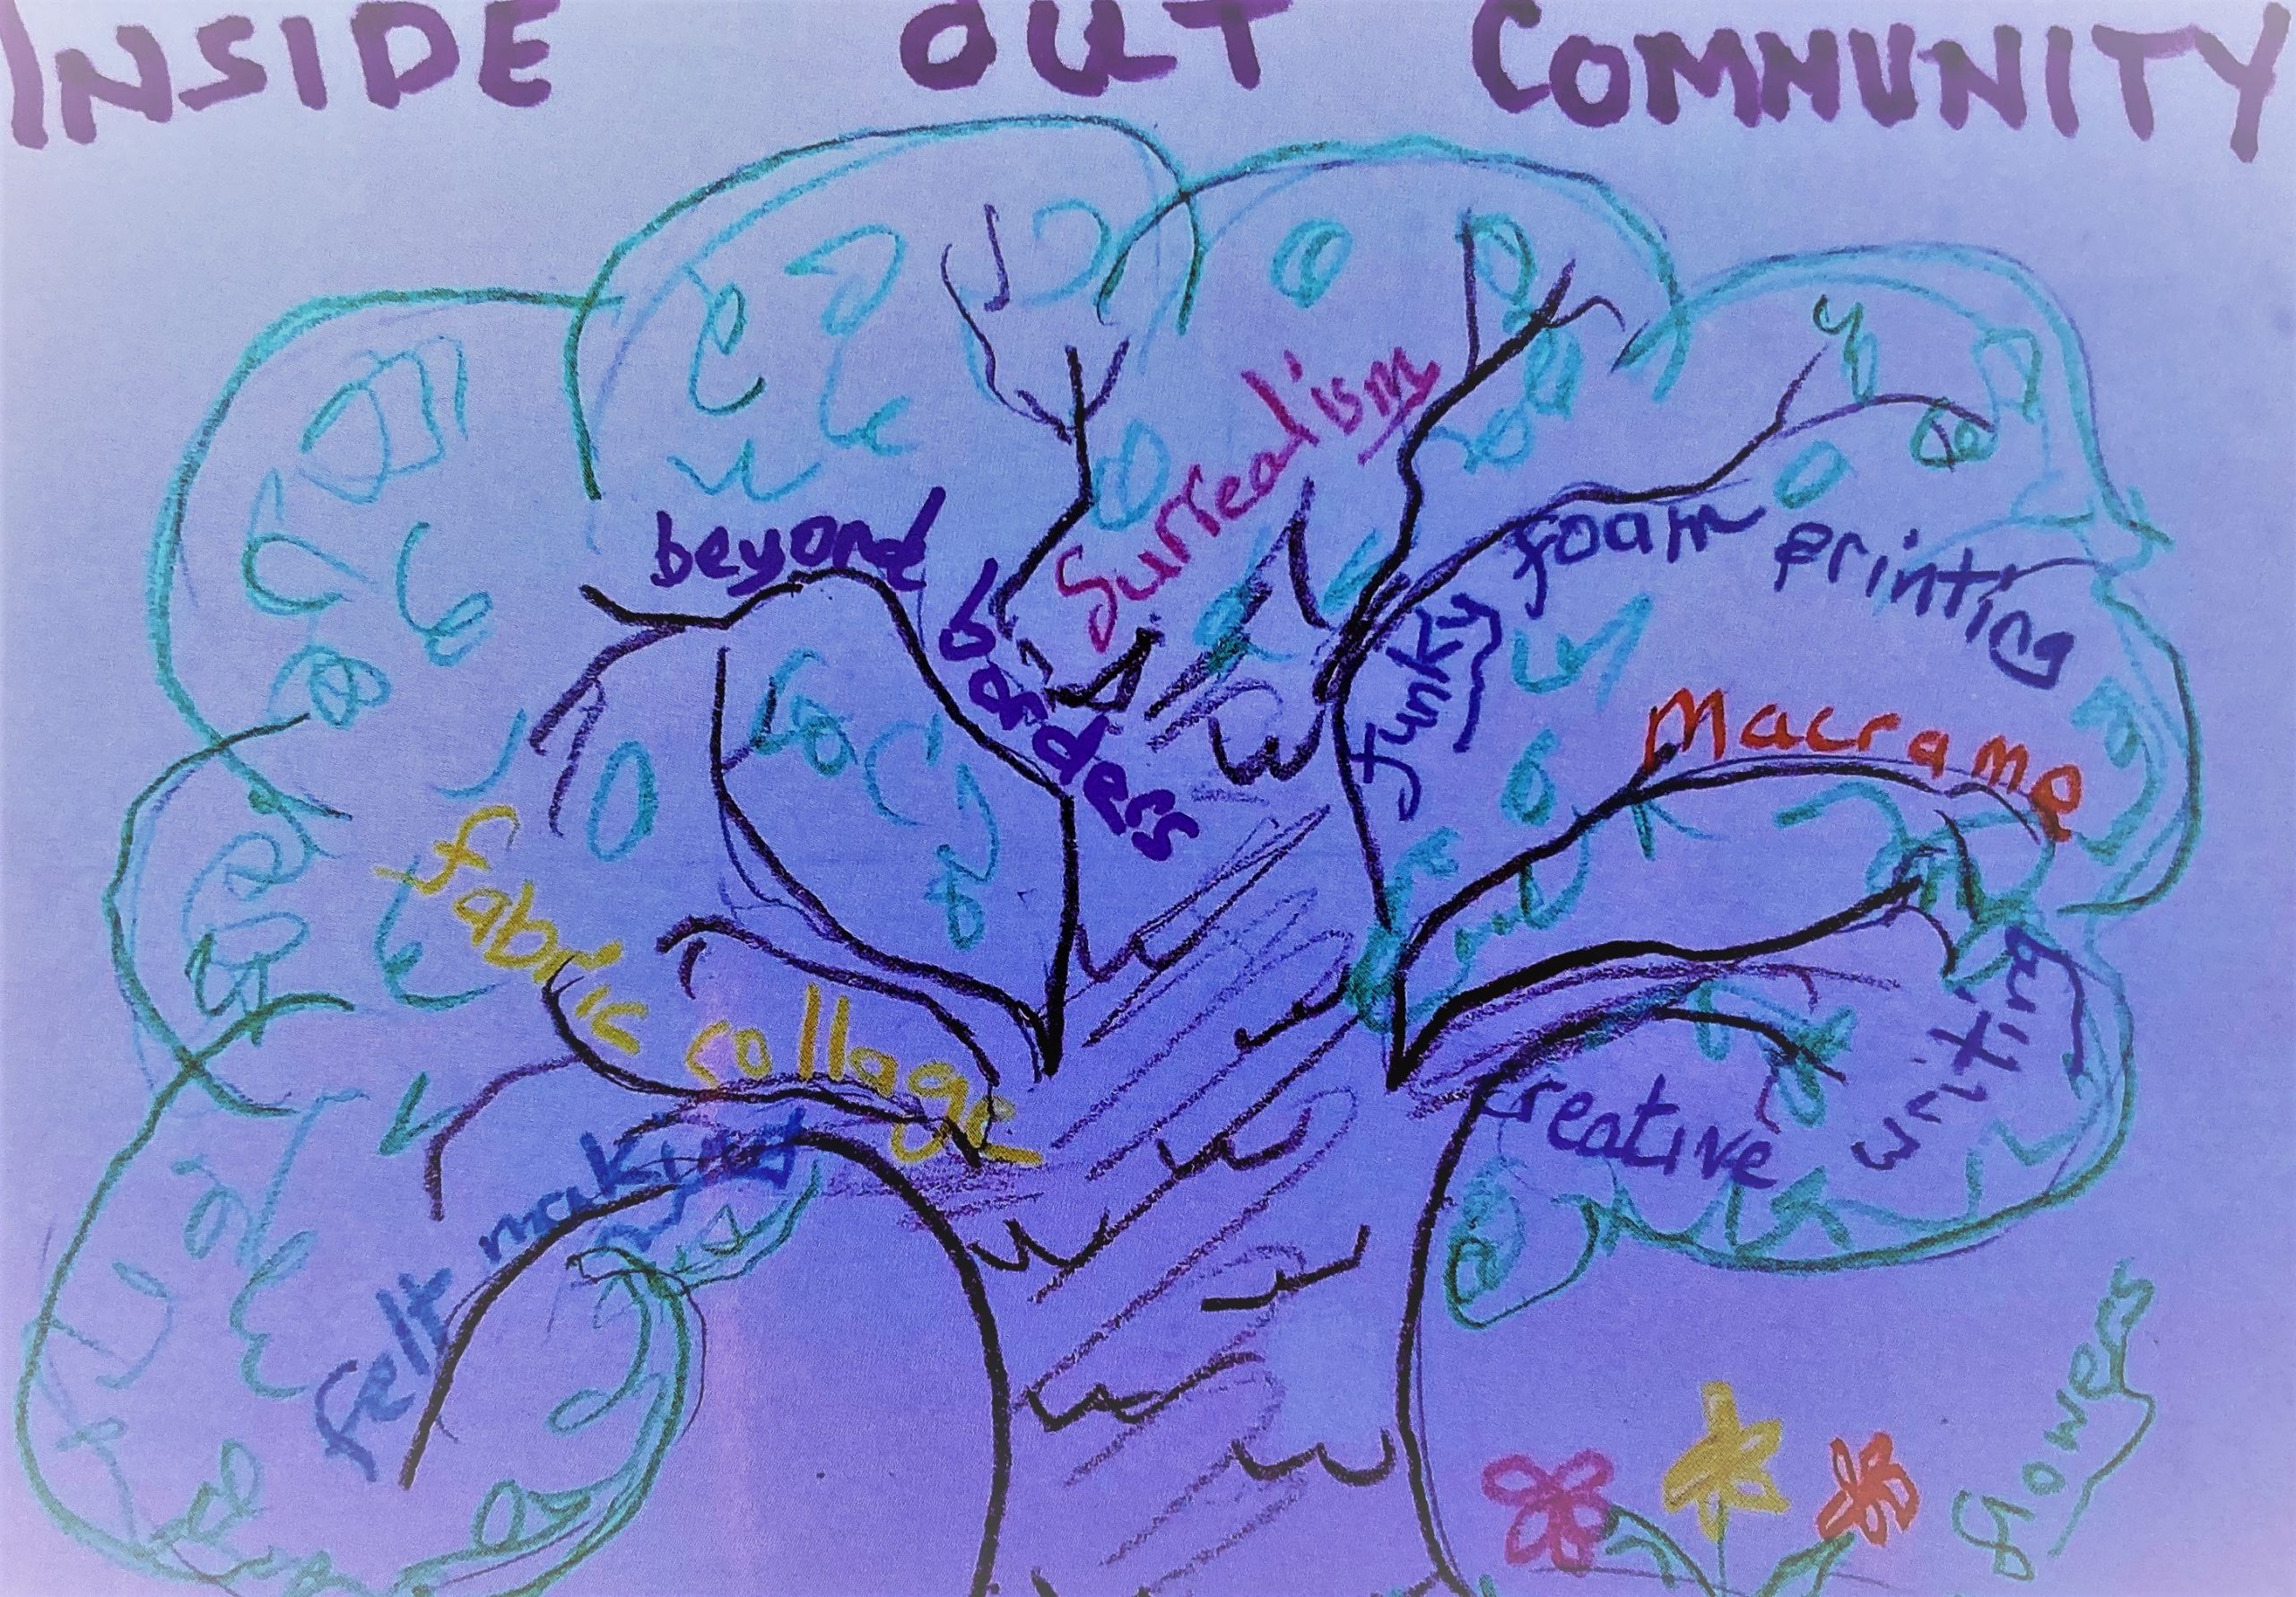 INSIDE OUT COMMUNITY
Surrealism
beyond borders
funky foam printing
Macrame
fabric collage
creative writing
felt making
flowers